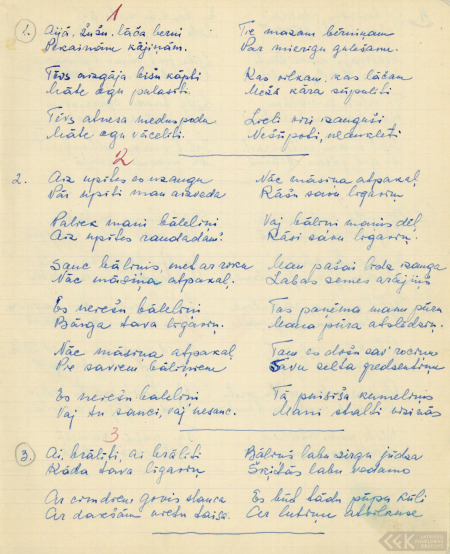 1
1. Aijā, žūžu, lāča bērni
Pekainām kājiņām.
Tēvs aizgāja bišu kāpti
Māte ogu palasīti
Tēvs atnesa medus podu
Māte ogu vācelīti.
Tie mazam bērniņam
Par mierīgu gulēšanu.
Kas vilkam, kas lāčam
Mežā kāra šūpulīti
Lieli vīri izauguši
Nešūpoti, neaukleti
2
2. Aiz upītes es uzaugu
Pār upīti man aizveda
Paliek mani bāleliņi
Aiz upītes raudādami.
Sauc bāliņis, met ar roku
Nāc māsiņa atpakaļ.
Es neiešu bāleliņi
Bārga tava līgaviņ.
Nāc māsiņa atpakaļ
Pie saviem bāliņiem
Es neiešu bāleliņi
Vaj tu sauci, vaj nesauc.
Nāc māsiņa atpakaļ
Rāšu savu līgaviņ
Vaj bāliņi manis dēļ
Rāsi savu līgaviņ.
Man pašai loda izauga
Labas zemes arājiņš
Tas paņēma manu pūru
Mana pūra atslēdziņ.
Tam es došu sav' rociņu
Savu zelta gredzentiņu
Tā puisīša kumeliņus
Mani stalti vizinās
3
3. Ai, brālīti, ai brālīti
Kāda tava līgaviņ
Ar cimdiem govis slauca
Ar dakšām vietu taisa.
Bāliņš labu zirgu jūdza
Šķitās labu vedamo
Es būt tādu pūpu kūli
Ar lutiņu atvilkuse
LATVIEŠU
FOLKLORAS
KRĀTUVE